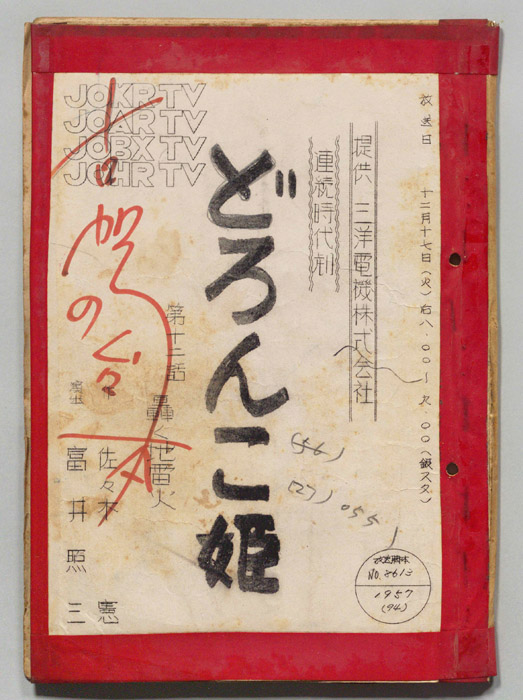 放送日 十二月十七日(火)后八.〇〇~九.〇〇(銀スタ)
提供 三洋電機株式会社
連続時代劇
どろんこ姫
第十二話 轟く地雷火
佐々木 憲
富井照三
JOKR TV
JOAR TV
JOBX TV
JOHR TV
古賀の台本
(56)
(27) 055
放送脚本
NO. 8613
1957
(94)